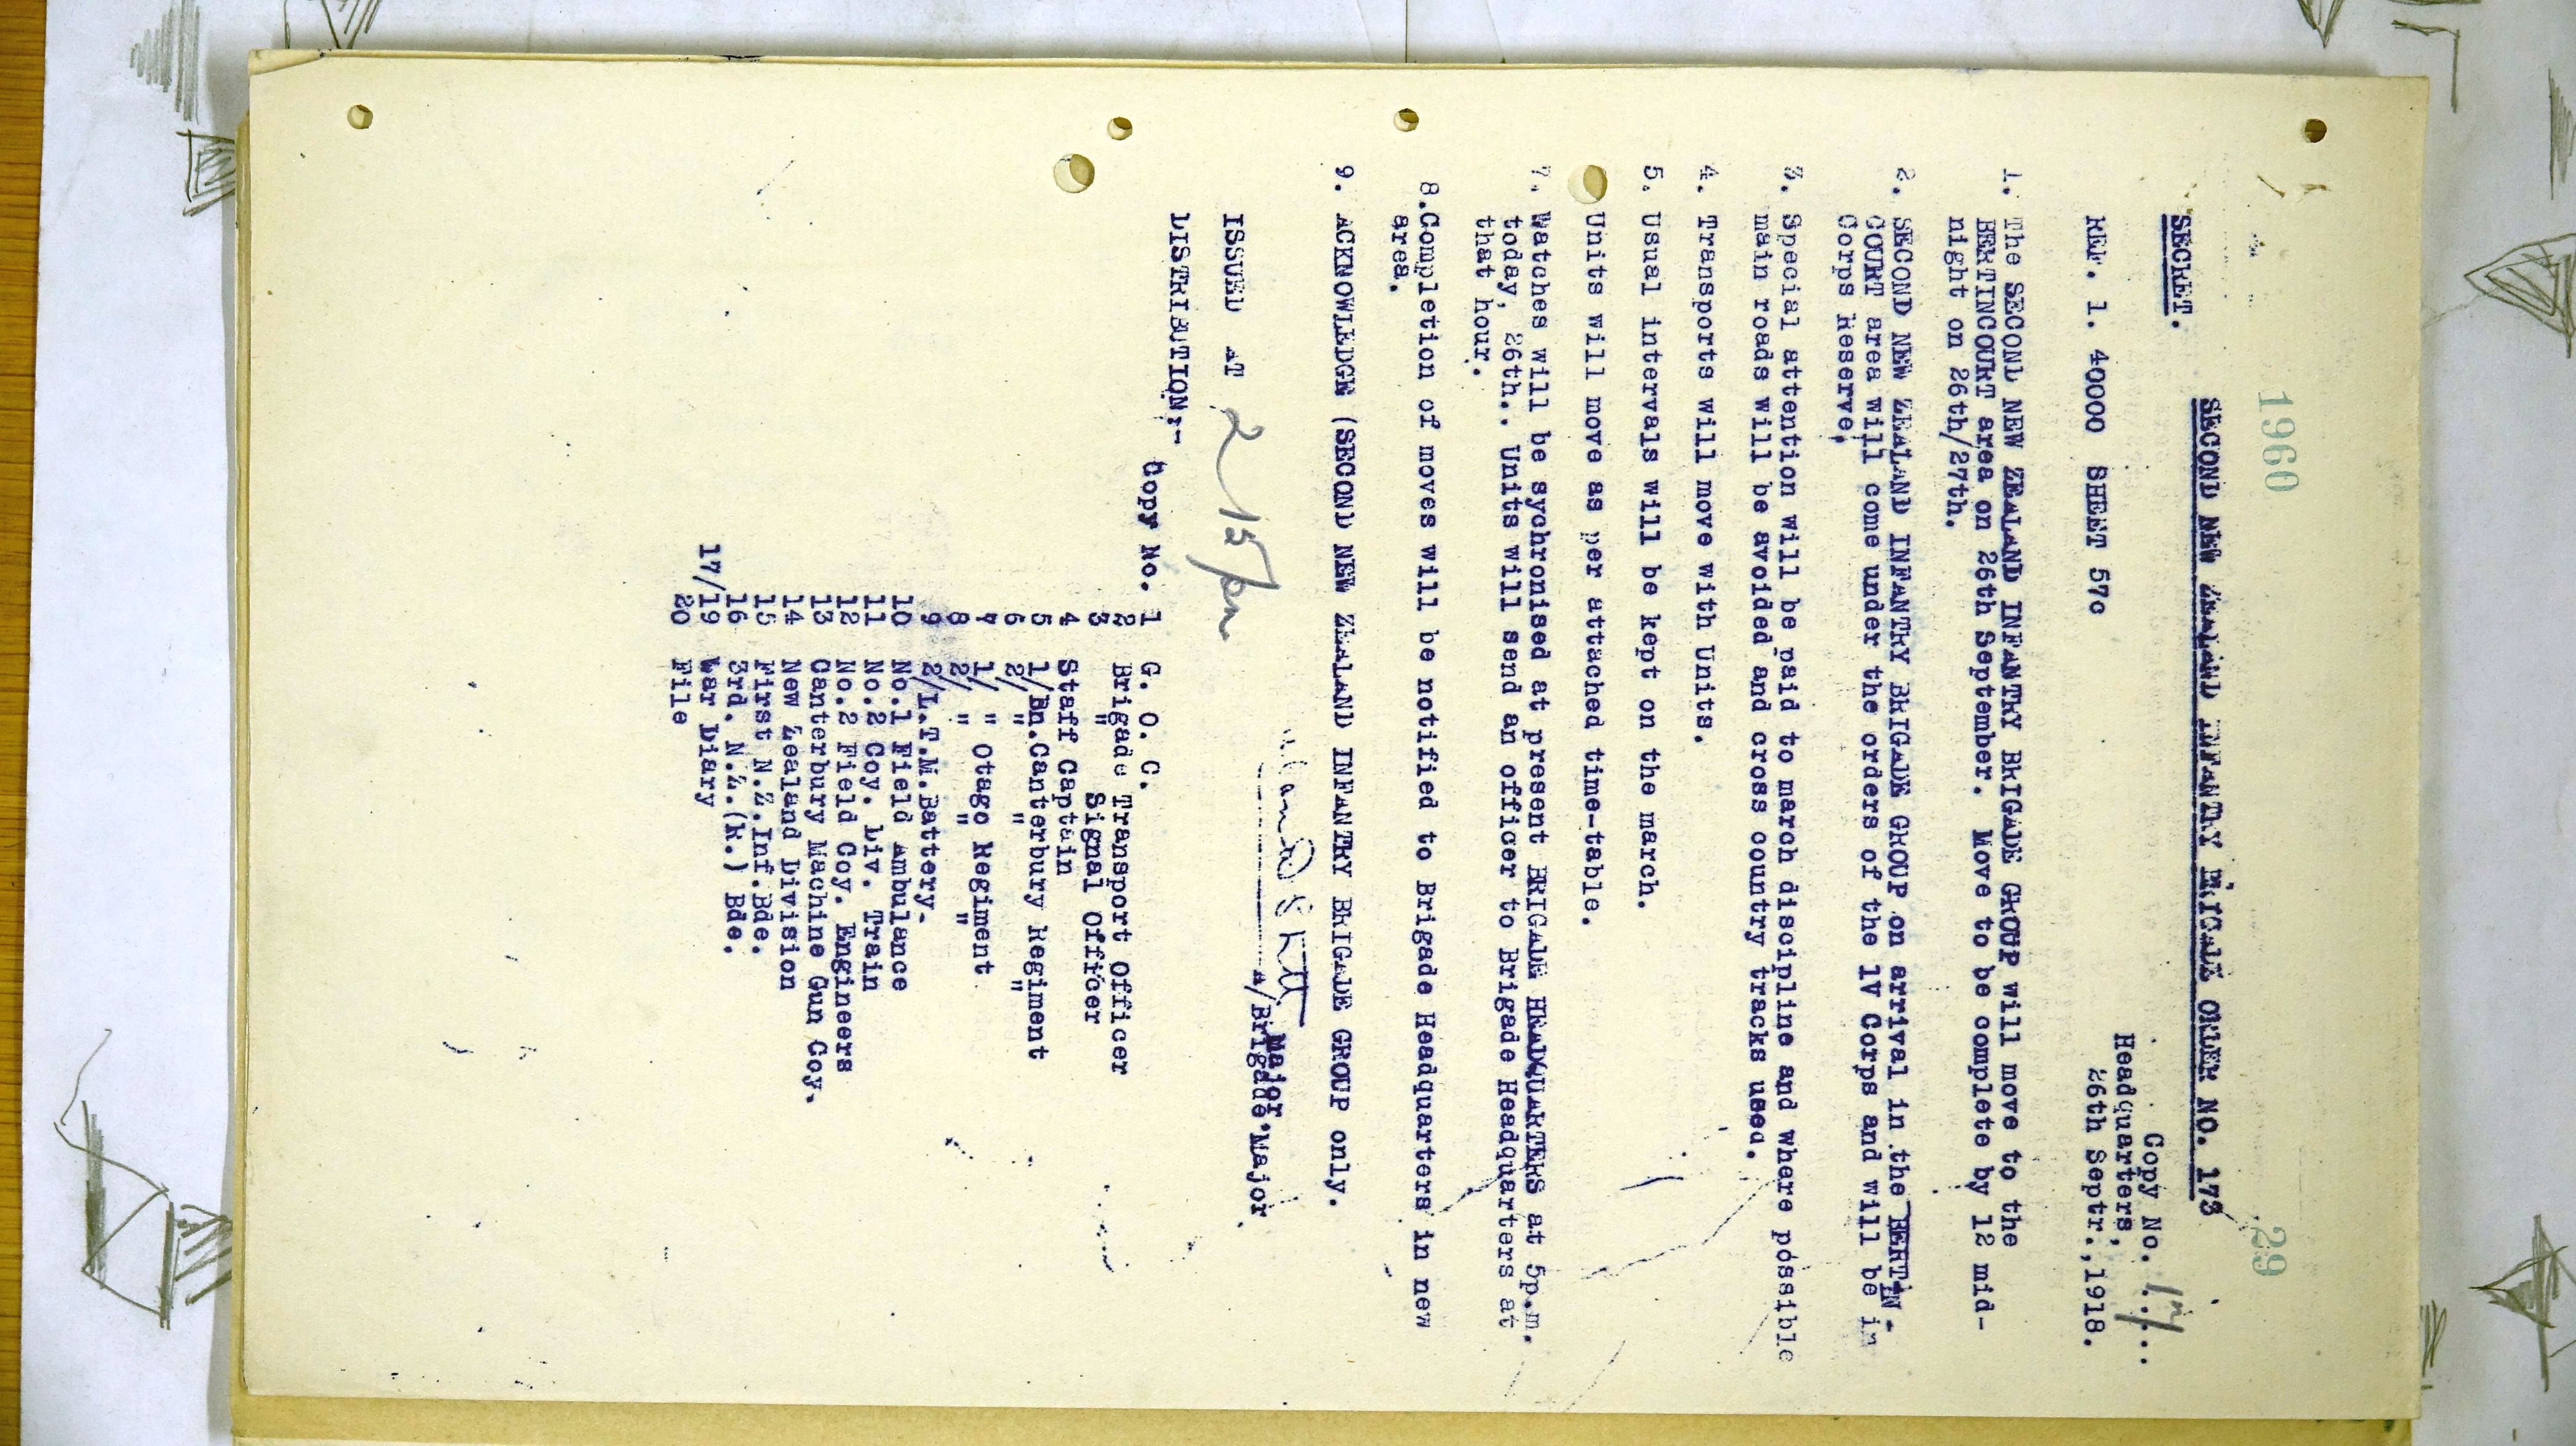 1960
29
SECOND NEW ZEALAND INFANTRY BRIGADE ORDER NO. 173
SECRET.
Copy No. 17
Headquarters,
26th Septr.,1918.
REF. 1. 40000 SHEET 57c
1. The SECOND NEW ZEALAND INFANTRY BRIGADE GROUP will move to the
BERTINCOURT area on 26th September. Move to be complete by 12 mid-
night on 26th/27th.
2. SECOND NEW ZEALAND INFANTRY BRIGADE GROUP on arrival in the BERTIN-
COURT area will come under the orders of the 1V Corps and will be in
Corps Reserve.
3. Special attention will be paid to march discipline and where possible
main roads will be avoided and cross country tracks used.
4. Transports will move with Units.
5. Usual intervals will be kept on the march.
Units will move as per attached time-table.
7. Watches will be sychronised at present BRIGADE HEADQUARTERS at 5p.m.
today, 26th.. Units will send an officer to Brigade Headquarters at
that hour.
8.Completion of moves will be notified to Brigade Headquarters in new
area.
9. ACKNOWLEDGE (SECOND NEW ZEALAND INFANTRY BRIGADE GROUP only.
Major.
A/Brigade Major
ISSUED AT 2 15 pm
DISTRIBUTION:-
Copy No. 1 G. O. C.
2 Brigade Transport Officer
3 " Signal Officer
4 Staff Captain
5 1/Bn.Canterbury Regiment
6 2/ " " "
7 1/ " Otago Regiment
8 2/ " " "
9 2/L.T.M.Battery.
10 No.1 Field Ambulance
11 No.2 Coy. Div. Train
12 No.2 Field Coy. Engineers
13 Canterbury Machine Gun Coy.
14 New Zealand Division
15 First N.Z.Inf.Bde.
16 3rd. N.Z.(R.) Bde.
17/19 War Diary
20 File